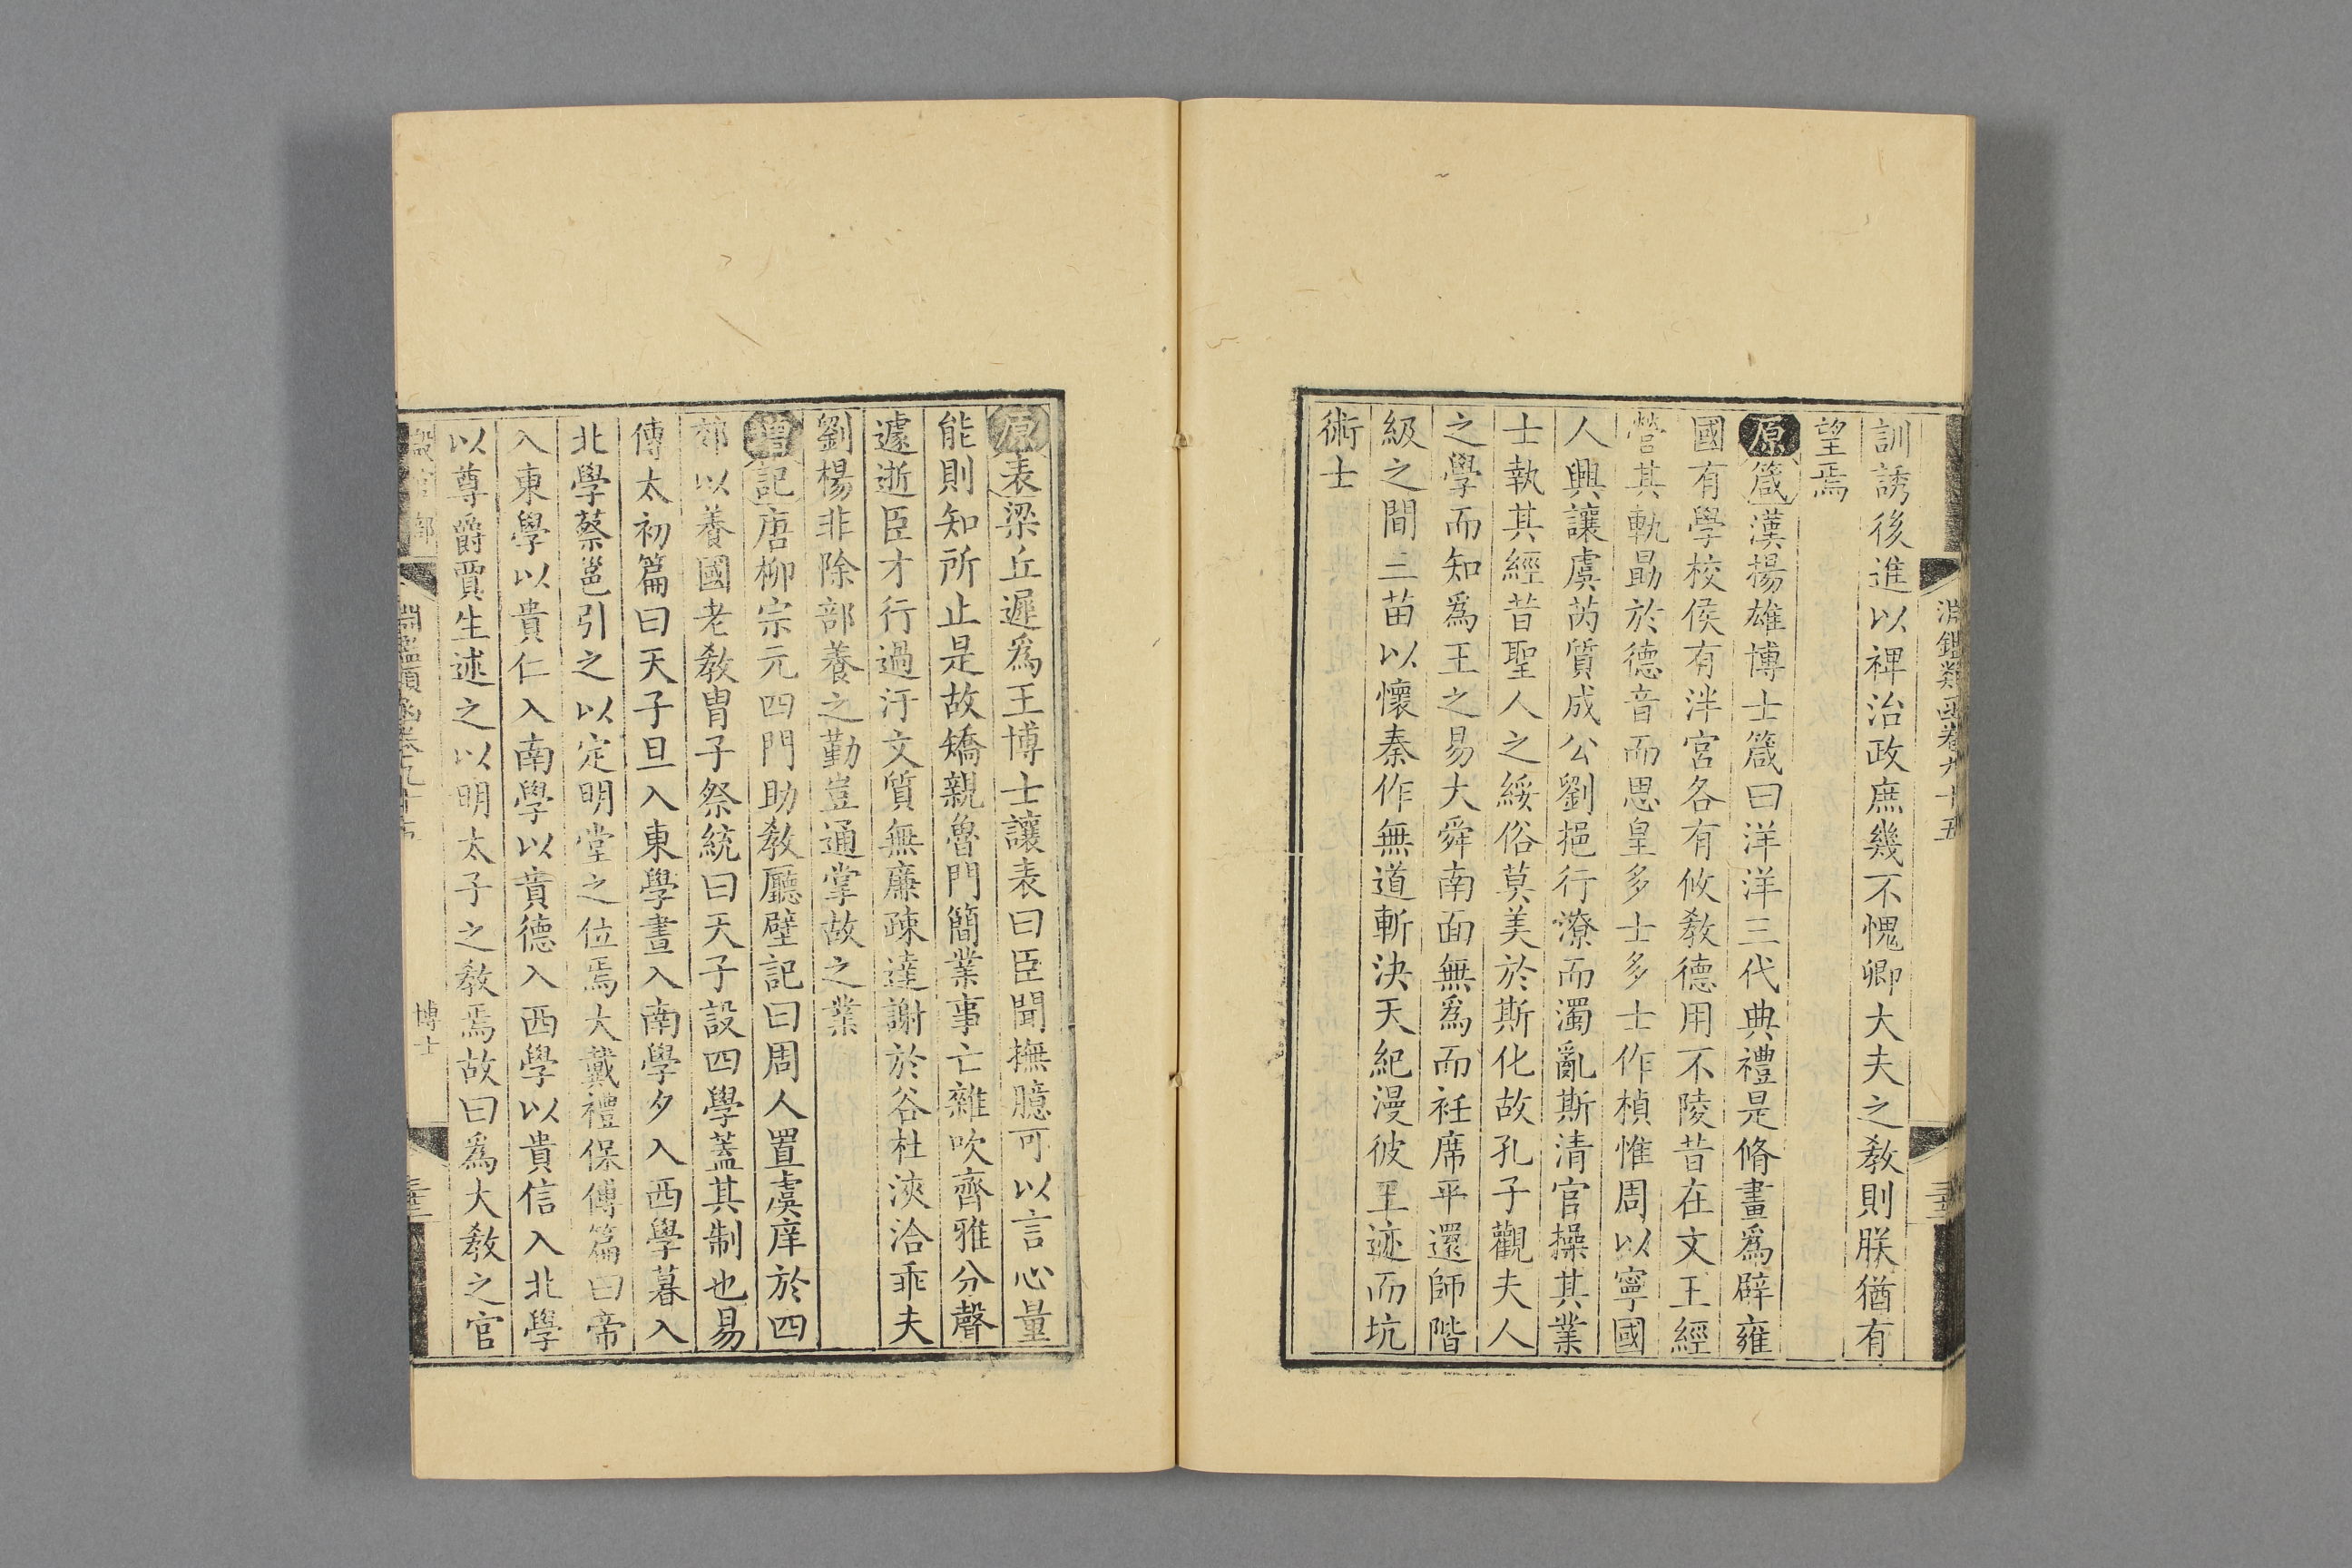 淵鑑類函卷九十五
訓誘後進以裨治政庶幾不愧卿大夫之教則朕猶有
望焉
原箴漢揚雄博士箴曰洋洋三代典禮是脩畫爲辟雍
國有學校侯有泮宮各有攸教德用不陵昔在文王經
營其軌勗於德音而思皇多士多士作楨惟周以寧國
人興讓虞芮質成公劉挹行潦而濁亂斯清官操其業
士執其經昔聖人之綏俗莫美於斯化故孔子觀夫人
之學而知爲王之易大舜南面無爲而衽席平還師階
級之間三苗以懷秦作無道斬決天紀漫彼王迹而坑
術士
原表梁丘遲爲王博士讓表曰臣聞撫臆可以言心量
能則知所止是故矯親魯門簡業事亡雜吹齊雅分聲
遽逝臣才行過汙文質無廉疎達謝於谷杜浹洽乖夫
劉楊非除部養之勤豈通掌故之業
增記唐柳宗元四門助教廳壁記曰周人置虞庠於四
郊以養國老教胄子祭統曰天子設四學蓋其制也易
傳太初篇曰天子旦入東學晝入南學夕入西學暮入
北學蔡邕引之以定明堂之位焉大戴禮保傅篇曰帝
入東學以貴仁入南學以貴德入西學以貴信入北學
以尊爵賈生述之以明太子之教焉故曰爲大教之官
淵鑑類函卷九十五
博士